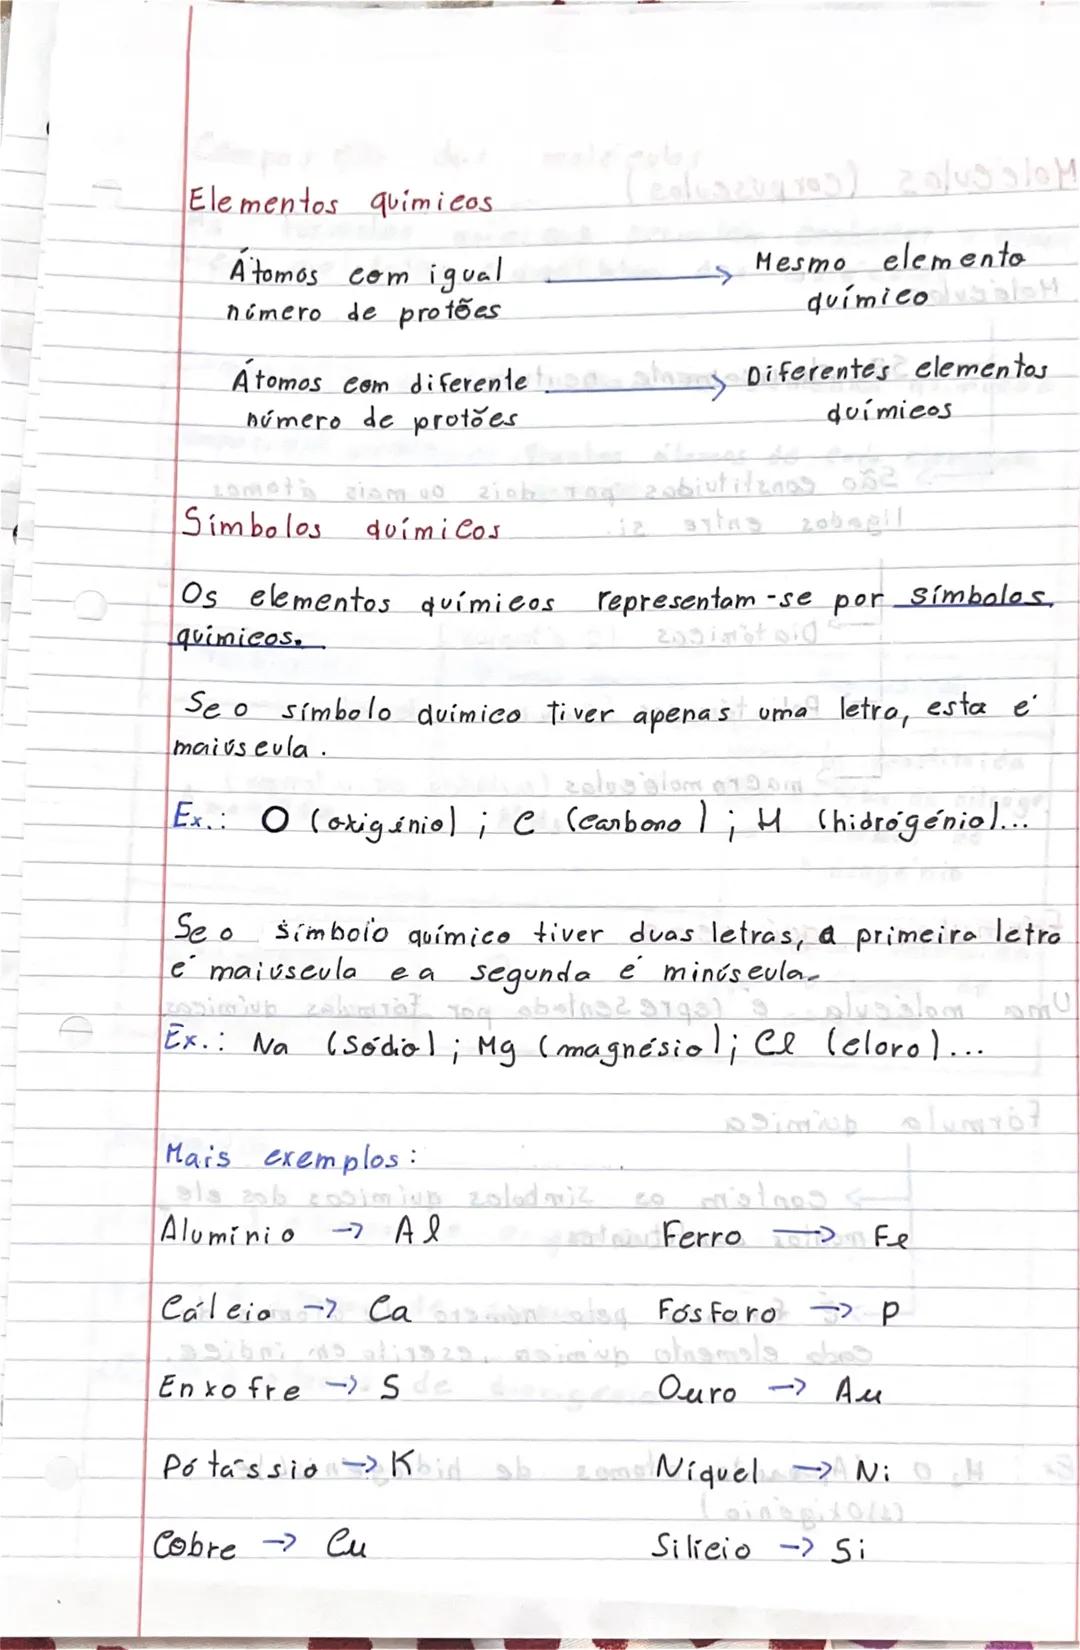 Elementos químicos
Átomos com igual → Mesmo elemento
número de protões químico
Átomos com diferente → Diferentes elementos
número de protões químicos
Símbolos químicos
Os elementos químicos representam-se por símbolos
químicos.
Se o símbolo químico tiver apenas uma letra, esta é
maiúscula.
Ex.: O (oxigénio); C (carbono); H (hidrógénio)...
Se o símbolo químico tiver duas letras, a primeira letra
é maiúscula e a segunda é minúscula.
Ex.: Na (Sódio); Mg (magnésio); Cl (cloro)...
Mais exemplos:
Alumínio → Al Ferro → Fe
Cálcio → Ca Fósforo → P
Enxofre → S Ouro → Au
Pótássio → K Níquel → Ni
Cobre → Cu Silício → Si